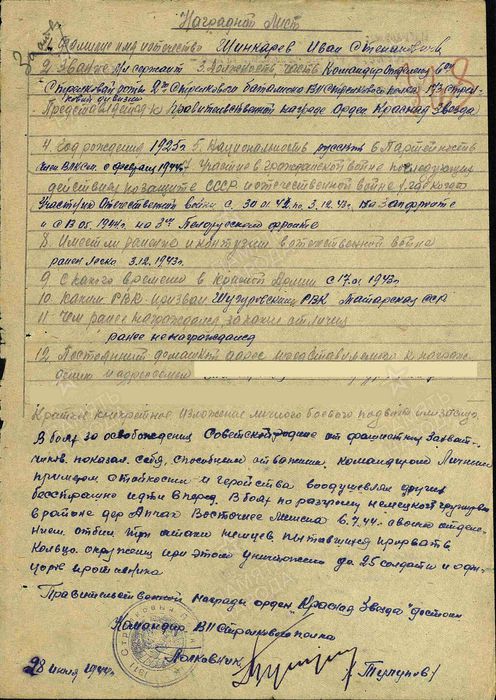 Наградной Лист
1. Фамилия имя и отчество Шинкарев Иван Степанович
2. Звание Мл сержант 3. Должность, часть Командир отделения 6ой
Стрелковой роты 2го Стрелкового батальона Стрелкового полка 173 Стрел-
ковой дивизии
Представляется к Правительственной награде Орден Красная Звезда
4. Год рождения 1925г 5. Национальность русский 6 Партийность
член ВЛКСМ с февраля 1944г 7 Участие в гражданской войне последующих
действиях по защите СССР и отечественной войне (где когда)
Участник Отечественной войны с 30 по 3.12.43г на Зап фронте
и с 13 05.1944г на 3ем Белорусском фронте
8. Имеет ли ранения и контузии в отечественной войне
ранен Легко 3.12.1943г.
9 с какого времени в Красной Армии с 17.01 1943г
10. Каким РВК призван РВК Татарская ССР
11. Чем ранее награждался, за какие отличия
ранее не награждался
12. Постоянный домашний адрес представляемого к награж-
дению и адрес семьи
Краткое конкретное изложение личного боевого подвига или заслуг
В боях за освобождение Советской родине от фашистких захват-
чиков показал себя, способным отважным командиром Личным
примером стойкости и геройства воодушевляя других
бесстрашно идти вперед. В боях по разгрому немецкой групировки
в районе дер Апчак Восточнее Минска 6.7.44г. своим отделе-
нием отбил три атаки немцев пытавшихся прорвать
кольцо окружения при этом уничтожено до 25 солдат и офи-
церов противника
Правительственной награды орден "Красная Звезда" достоин
Командир Стрелкового полка
Полковник
28 1944г